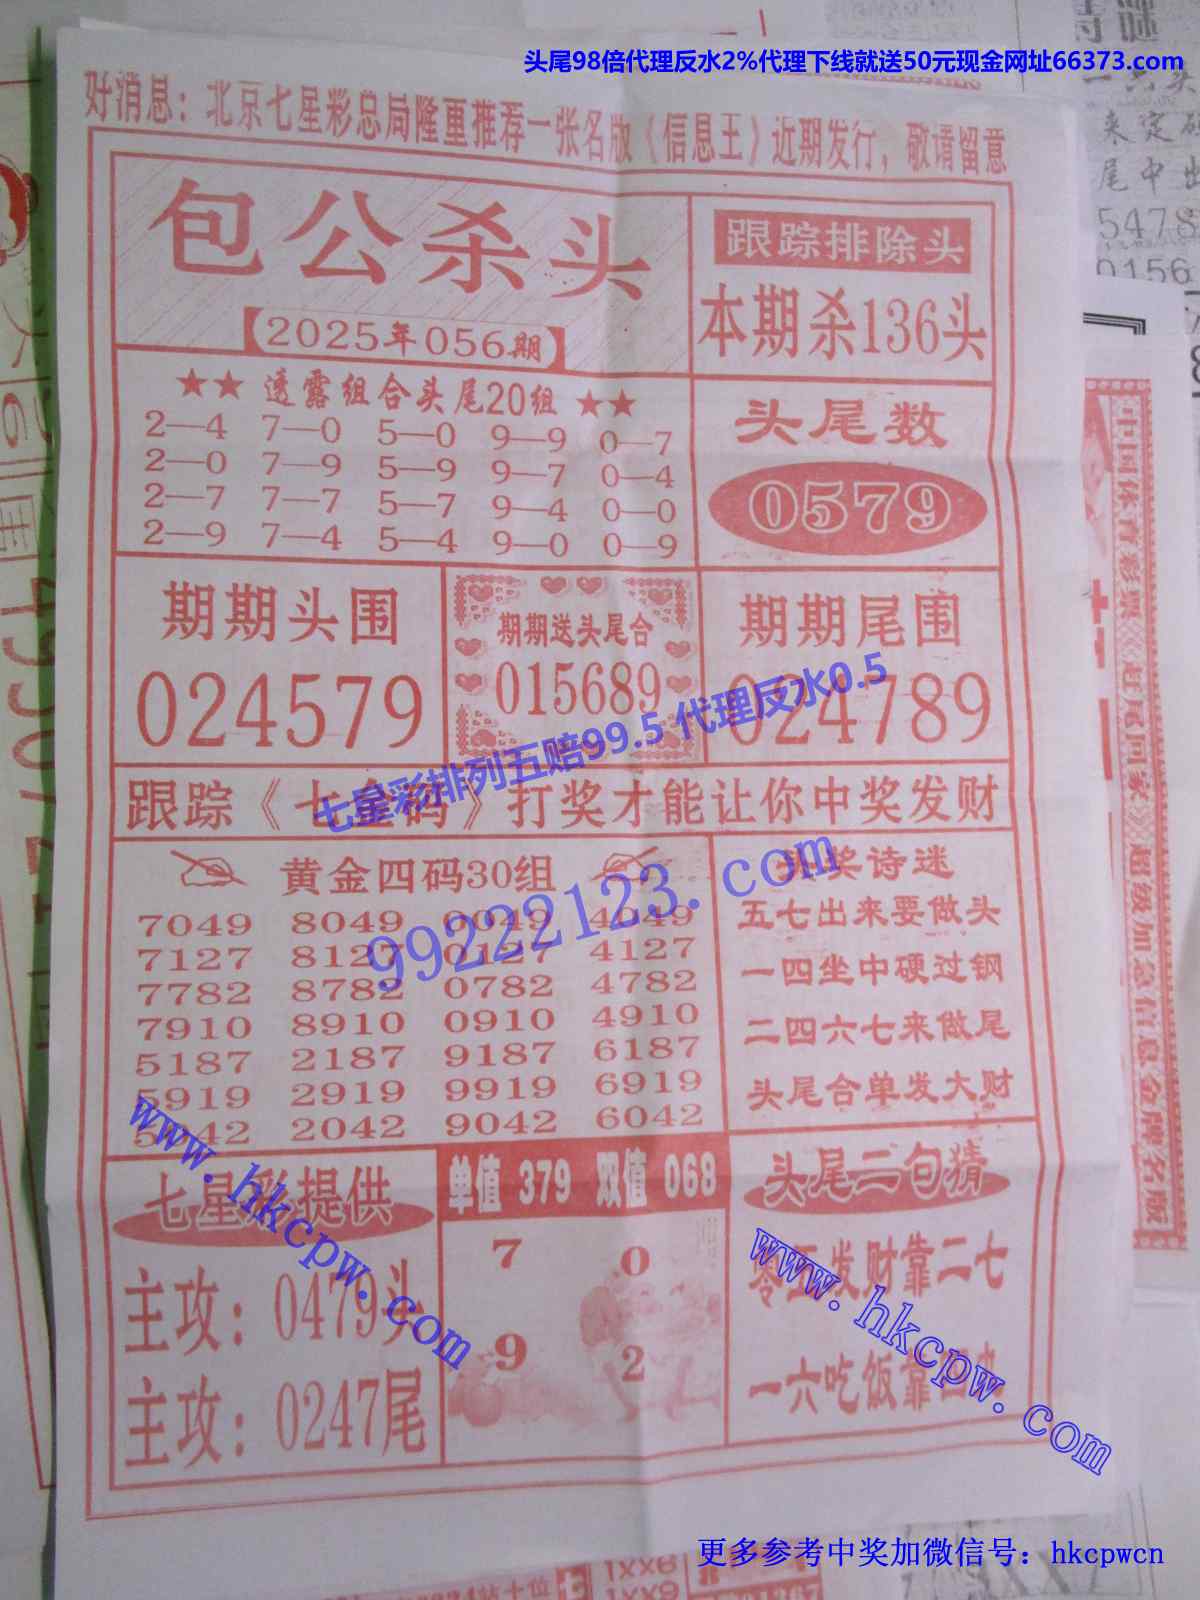 头尾98倍代理反水2%代理下线就送50元现金网址66373.com
好消息：北京七星彩总局隆重推荐一张名版《信息王》近期发行，敬请留意
包公杀头
【2025年056期】
跟踪排除头
本期杀136头
★★ 透露组合头尾20组 ★★
2—4 7—0 5—0 9—9 0—7
2—0 7—9 5—9 9—7 0—4
2—7 7—7 5—7 9—4 0—0
2—9 7—4 5—4 9—0 0—9
头尾数
0579
期期头围
024579
期期送头尾合
015689
期期尾围
024789
七星彩排列五赔99.5 代理反水0.5
跟踪《七金码》打奖才能让你中奖发财
黄金四码30组
7049 8049 0049 4049
7127 8127 0127 4127
7782 8782 0782 4782
7910 8910 0910 4910
5187 2187 9187 6187
5919 2919 9919 6919
5042 2042 9042 6042
99222123.com
头奖诗迷
五七出来要做头
一四坐中硬过钢
二四六七来做尾
头尾合单发大财
七星彩提供
主攻：0479头
主攻：0247尾
单值 379 双值 068
7 0
9 2
头尾二句猜
零五发财靠二七
一六吃饭靠四
www.hkcpw.com
www.hkcpw.com
更多参考中奖加微信号：hkcpwcn
来定
尾中出
5478
0156
中国体育彩票《赶尾回家》超级加急信息金牌名版
1XX6
1XX9